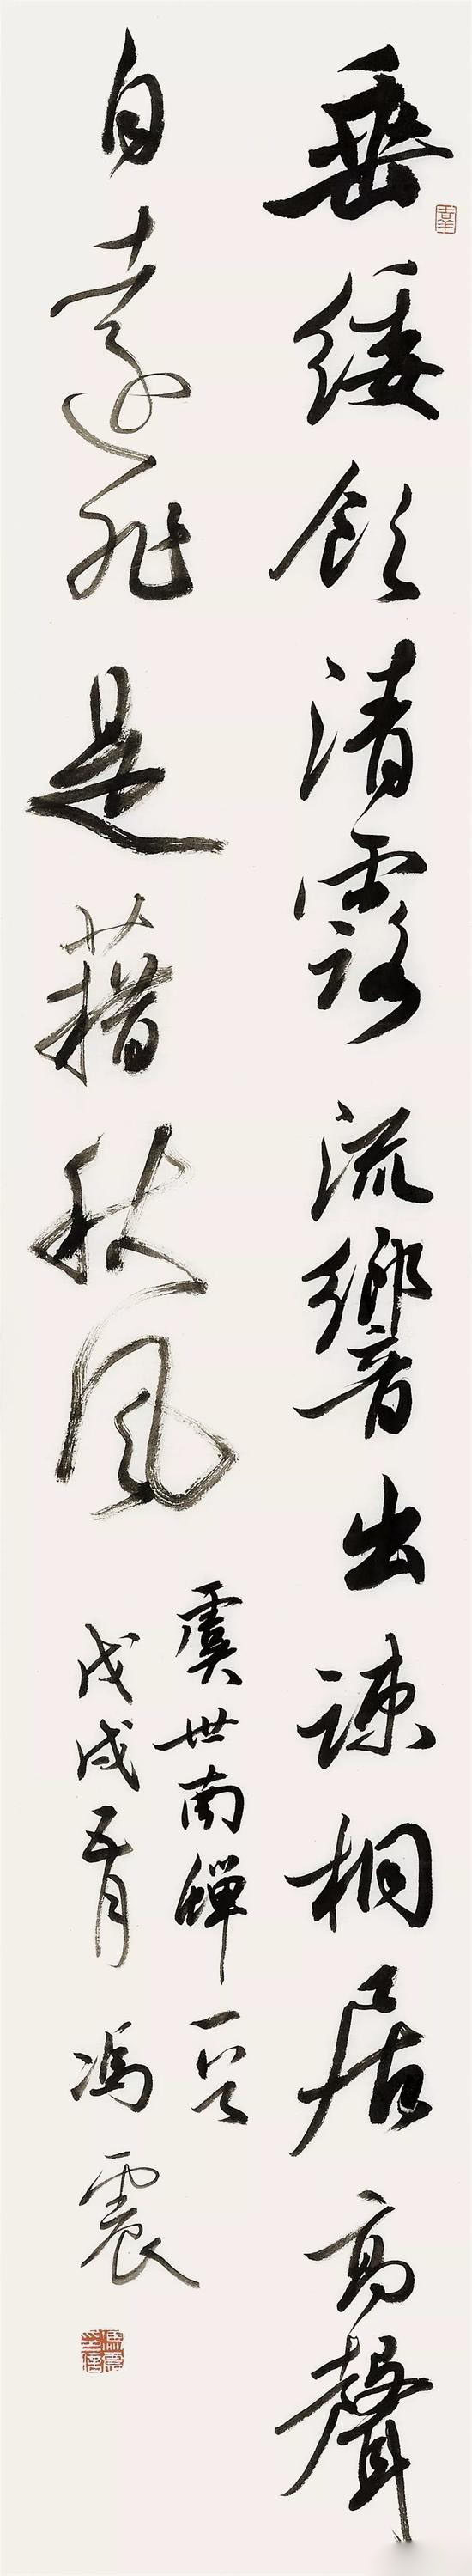 垂緌飲清露流響出疎桐居高聲
自遠非是藉秋風
虞世南蟬一首
戊戌五月馮震